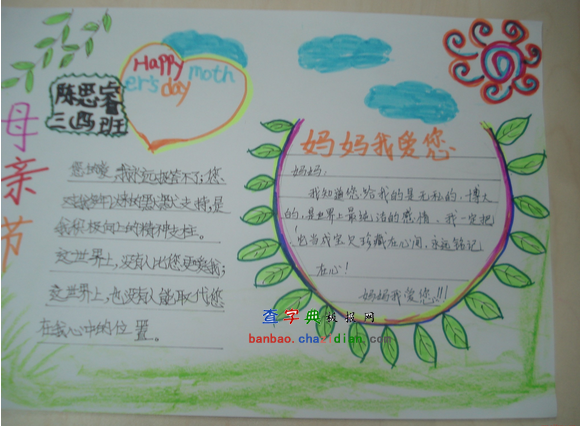 母亲节
Happy
moth
er's day
陈思睿
三(四)班
妈妈我爱您
妈妈:
我知道您给我的是无形的,博大
的,是世界上最纯洁的感情。我一定把
它当成宝贝珍藏在心间,永远铭记
在心!
妈妈我爱您!!!
您的爱,我永远报答不了;您
支持是
我积极向上的精神支柱。
这世界上,没有人比您更爱我;
这世界上,也没有人能取代您
在我心中的位置。
查字典板报网
banbao.chazidian.com